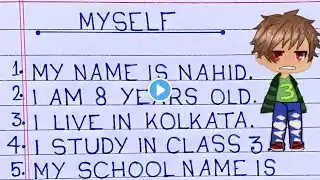 MYSELF
1. MY NAME IS NAHID.
2. I AM 8 YEARS OLD.
3. I LIVE IN KOLKATA.
4. I STUDY IN CLASS 3.
5. MY SCHOOL NAME IS
3